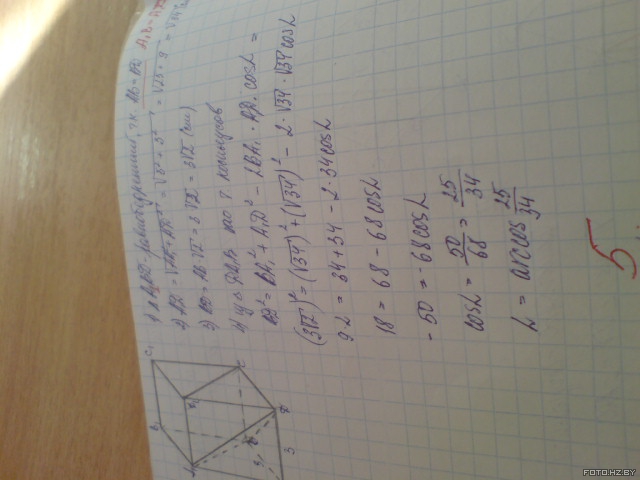 1) Δ A₁BD - равнобедренный, т.к. AB = AD
A₁B = A₁D
2) = √5² + 3² = √25 + 9 = √34
3) BD = AB√2 = 3√2 = 3√2 (см)
4) из по т. косинусов
BD² = BA₁² + A₁D² - 2BA₁ · A₁D · cosL =
(3√2)² = (√34)² + (√34)² - 2 · √34 · √34 cosL
9·2 = 34 + 34 - 2 · 34 cosL
18 = 68 - 68 cosL
-50 = -68 cosL
cosL = 50/68 = 25/34
L = arccos 25/34
5
C₁
3
3
FOTO.HZ.BY